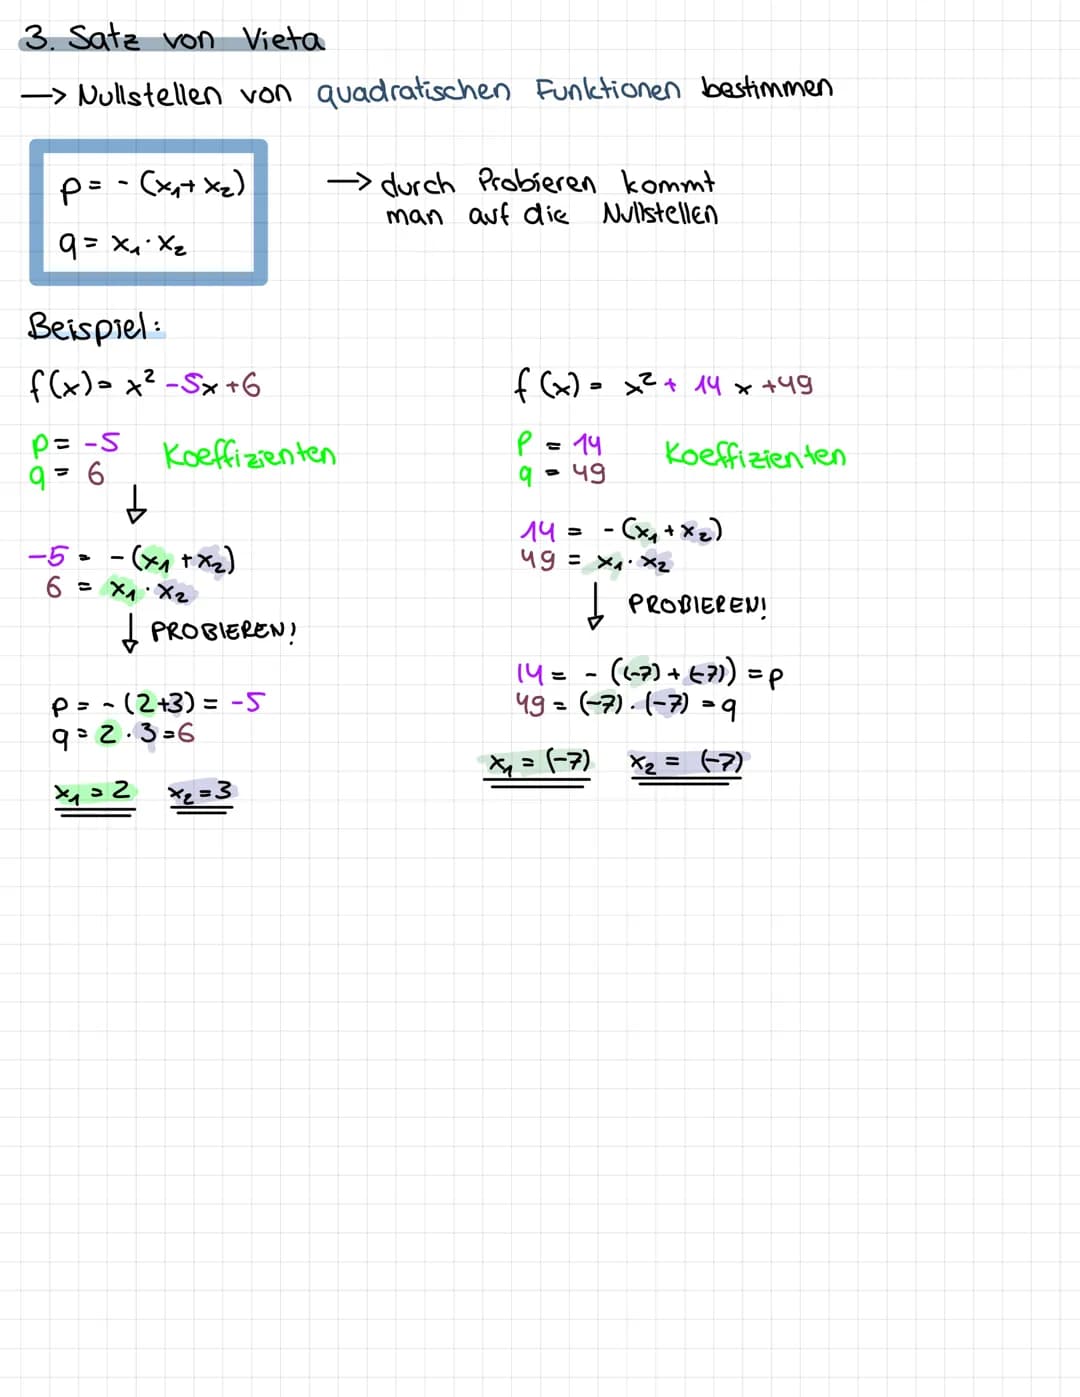 3. Satz von Vieta
→ Nullstellen von quadratischen Funktionen bestimmen
p = - (x₁ + x₂)
q = x₁ · x₂
→ durch Probieren kommt
man auf die Nullstellen
Beispiel:
f(x) = x² - 5x + 6
p = -5
q = 6
Koeffizienten
↓
-5 = - (x₁ + x₂)
6 = x₁ · x₂
↓ PROBIEREN!
p = - (2+3) = -5
q = 2 · 3 = 6
x₁ = 2 x₂ = 3
f(x) = x² + 14x + 49
p = 14
q = 49
Koeffizienten
14 = - (x₁ + x₂)
49 = x₁ · x₂
↓ PROBIEREN!
14 = - ((-7) + (-7)) = p
49 = (-7) · (-7) = q
x₁ = (-7) x₂ = (-7)